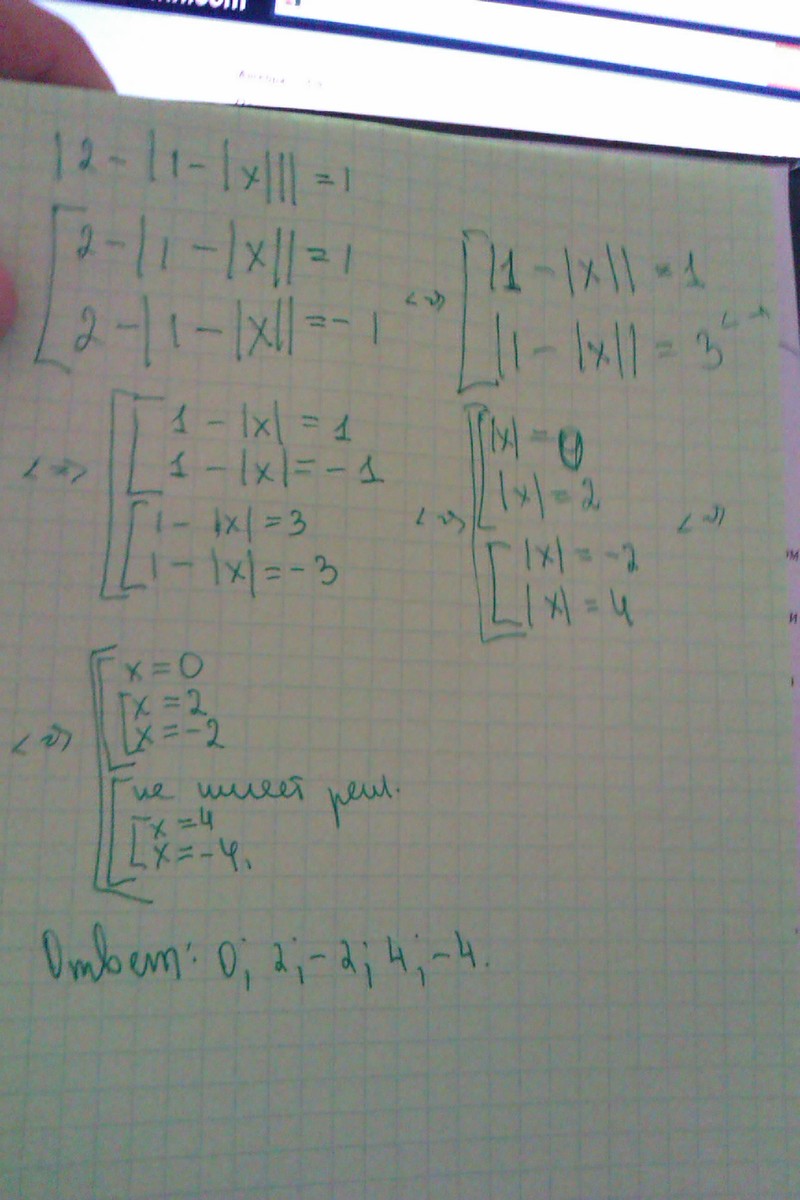 |2-|1-|x|||=1
2-|1-|x||=1
2-|1-|x||=-1
<=> |1-|x||=1
|1-|x||=3 <=>
<=> 1-|x|=1
1-|x|=-1
1-|x|=3
1-|x|=-3
<=> |x|=0
|x|=2
|x|=-2
|x|=4
<=>
<=> x=0
x=2
x=-2
не имеет реш.
x=4
x=-4.
Ответ: 0; 2; -2; 4; -4.